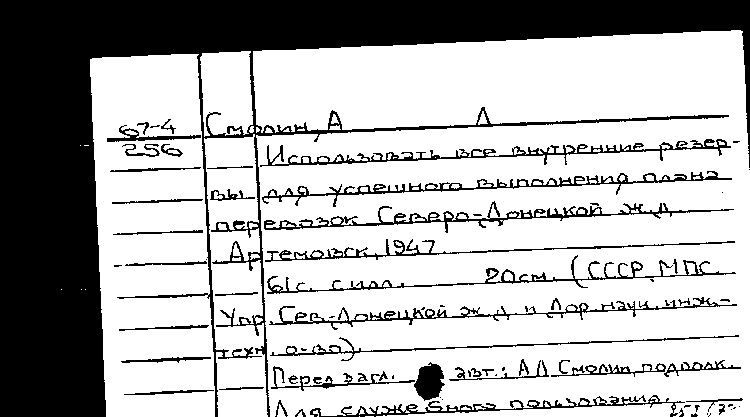 67-4 Смолин, А Л
256 Использовать все внутренние резер-
вы для успешного выполнения плана
перевозок Северо-Донецкой ж.д.
Артемовск, 1947.
61с. с илл. 20см. (СССР. МПС.
Упр. Сев.-Донецкой ж.д. и Дор. науч. инж.-
техн. о-во).
Перед загл. авт.: АЛ Смолин, подполк.
Для служебного пользования.